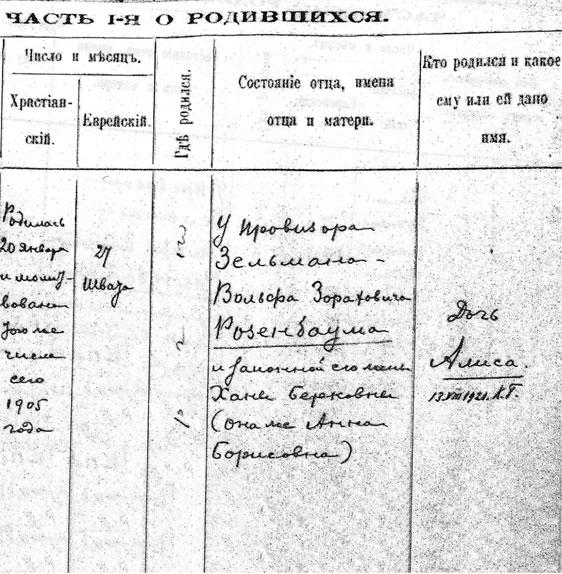 ЧАСТЬ I-Я О РОДИВШИХСЯ.
Число и мѣсяцъ.
Христіан-
скій.
Еврейскій.
Гдѣ родился.
Состояніе отца, имена
отца и матери.
Кто родился и какое
ему или ей дано
имя.
Родилась
20 января
и
-
вована
того же
числа
сего
1905
года
27
Швата
У провизора
Зельмана-
Вольфа Зораховича
Розенбаума
и законной его жены
Ханы Берковны
(она же Анна
Борисовна)
Дочь
Алиса.